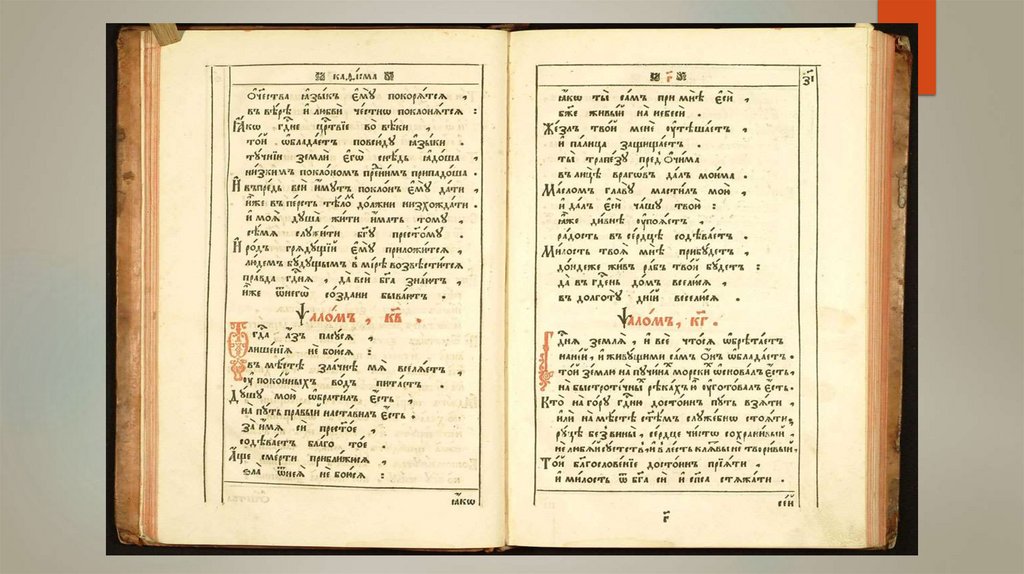 каѳісма
Ѻте́чества ꙗ҆зы́къ є҆мꙋ̀ покорѧ́тсѧ ,
въ вѣ́рѣ и҆ любвѝ че́стнѡ поклонѧ́тсѧ :
Ꙗ҆́кѡ гдⷭ҇не црⷭ҇твїе во вѣ́ки ,
то́й ѡ҆блада́етъ повсю́дꙋ ꙗ҆зы́ки .
тꙋ́чнїи землѝ є҆гѡ̀ снѣ́дь ꙗ҆до́ша ,
ни́зкимъ покло́номъ пре́йнимъ припадо́ша .
И҆ впре́дь всѝ и҆́мꙋтъ покло́нъ є҆мꙋ̀ да́ти ,
и҆̀же въ пе́рсть тѣ́ло до́лжни низхожда́ти .
и҆ моѧ̀ дꙋша̀ жи́ти и҆́мать томꙋ̀ ,
сѣ́мѧ слꙋжи́ти бг҃ꙋ прест҃о́мꙋ .
И҆ ро́дъ грѧдꙋ́щїй є҆мꙋ̀ приложи́тсѧ ,
лю́демъ бꙋ́дꙋщымъ в мі́рѣ возвѣсти́тсѧ
пра́вда гдⷭ҇нѧ , да всѝ бг҃а зна́ютъ ,
и҆̀же ѿ негѡ̀ со́здани быва́ютъ .
Ѱало́мъ , к҃в .
Гдⷭ҇а а҆́зъ пасꙋ́сѧ ,
лише́нїѧ не бою́сѧ :
въ мѣ́стѣ зла́чнѣ мѧ̀ вселѧ́етъ ,
ᲂу҆ поко́йныхъ во́дъ пита́етъ .
Дꙋ́шꙋ мою̀ ѡ҆брати́лъ є҆́сть ,
на пꙋ́ть пра́вый наста́вилъ є҆́сть .
За и҆́мѧ сѝ прест҃о́е ,
содѣ́ваетъ бла́го то́е .
А҆́ще сме́рти прибли́жисѧ ,
ѕла̀ ѿ неѧ̀ не бою́сѧ :
ꙗ҆́кѡ
г҃
з҃і
ꙗ҆́кѡ ты̀ са́мъ при мнѣ̀ є҆сѝ ,
бж҃е живы́й на небесѝ .
Же́злъ тво́й менѐ ᲂу҆тѣша́етъ ,
и҆ па́лица защища́етъ .
ты̀ трапе́зꙋ пред ѻ҆чи́ма
въ лицѐ враго́въ да́лъ мои́ма .
Ма́сломъ главꙋ̀ ма́стилъ мою̀ ,
и҆ да́лъ є҆сѝ ча́шꙋ твою̀ :
ꙗ҆́же ди́внѣ ᲂу҆поѧ́етъ ,
ра́дость въ се́рдцѣ содѣва́етъ .
Ми́лость твоѧ̀ мнѣ̀ прибꙋ́детъ ,
до́ндеже жи́въ ра́бъ тво́й бꙋ́детъ :
да въ гдⷭ҇ень до́мъ всели́сѧ ,
въ долготꙋ̀ дні́й весели́сѧ .
Ѱало́мъ , к҃г .
Гдⷭ҇нѧ землѧ̀ , и҆ всѐ что́сѧ ѡ҆брѣта́етъ
на не́й , и҆ живꙋ́щими са́мъ О҆́нъ ѡ҆блада́етъ .
то́й зе́млю на пꙋчи́нахъ морски́хъ ѡ҆снова́лъ є҆́сть ,
на быстроте́чныхъ рѣка́хъ и҆ ᲂу҆гото́валъ є҆́сть .
Кто̀ на го́рꙋ гдⷭ҇ню досто́инъ пꙋ́ть взѧ́ти ,
и҆лѝ на мѣ́стѣ ст҃ѣ́мъ слꙋже́бнѡ стоѧ́ти ,
рꙋ́цѣ без вины̀ , се́рдце чи́стѡ сохрани́вый ,
не любѧ́й сꙋ́етствъ , и҆ в ле́сть клѧ́твы не твори́вый ,
То́й бл҃гослове́нїе досто́инъ прїѧ́ти ,
и҆ ми́лость ѿ бг҃а сѝ и҆ сп҃са стѧжа́ти .
се́й
г҃